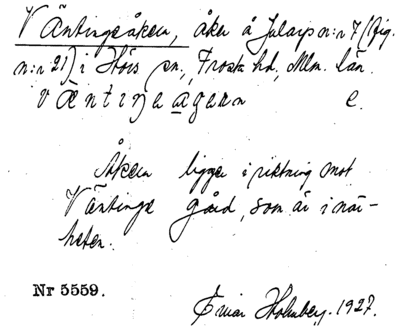 Väntingeåkern, åker å Julaps n:r 7 (fig.
n:r 21) i Hörs sn, Frosta hd, Mlm. län.
væntiŋeagærn e.
Åkern ligger i riktning mot
Väntinge gård, som är i när-
heten.
Nr 5559.
Einar Holmberg. 1927.